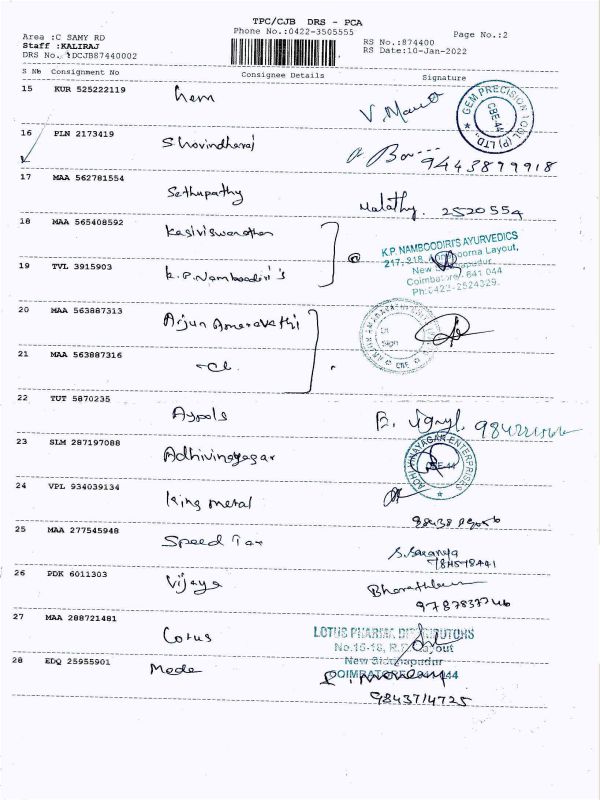 TPC/CJB DRS - PCA
Area :C SAMY RD Phone No.:0422-3505555 Page No.:2
Staff :KALIRAJ RS No.:874400
DRS No. :DCJB87440002 RS Date:10-Jan-2022
S No Consignment No Consignee Details Signature
15 KUR 525222119 hem
GEM PRECISION TOOL (P) LTD., CBE-44
16 PLN 2173419 Shovindheraj 9443879918
17 MAA 562781554 Sethupathy Malathy. 2520554
18 MAA 565408592 Kasiviswanathan
K.P. NAMBOODIRI'S AYURVEDICS
217, 218, Annapoorna Layout,
New Siddhapudur,
19 TVL 3915903 K.P. Namboodiri's
Coimbatore 641 044
Ph:0422-2524329.
20 MAA 563887313 Arjun Amaravathi
21 MAA 563887316
CBE
22 TUT 5870235 Aypols
23 SLM 287197088 Adhivinayagar
ADHI VINAYAGAR ENTERPRISES CBE-44
24 VPL 934039134 King metal
25 MAA 277545948 Speed Tax
26 PDK 6011303 Vijaya
27 MAA 288721481 Lotus
LOTUS PHARMA DISTRIBUTORS
No.15-16, Layout
New Siddhapudur
28 EDQ 25955901 Mode
COIMBATORE
9843714725